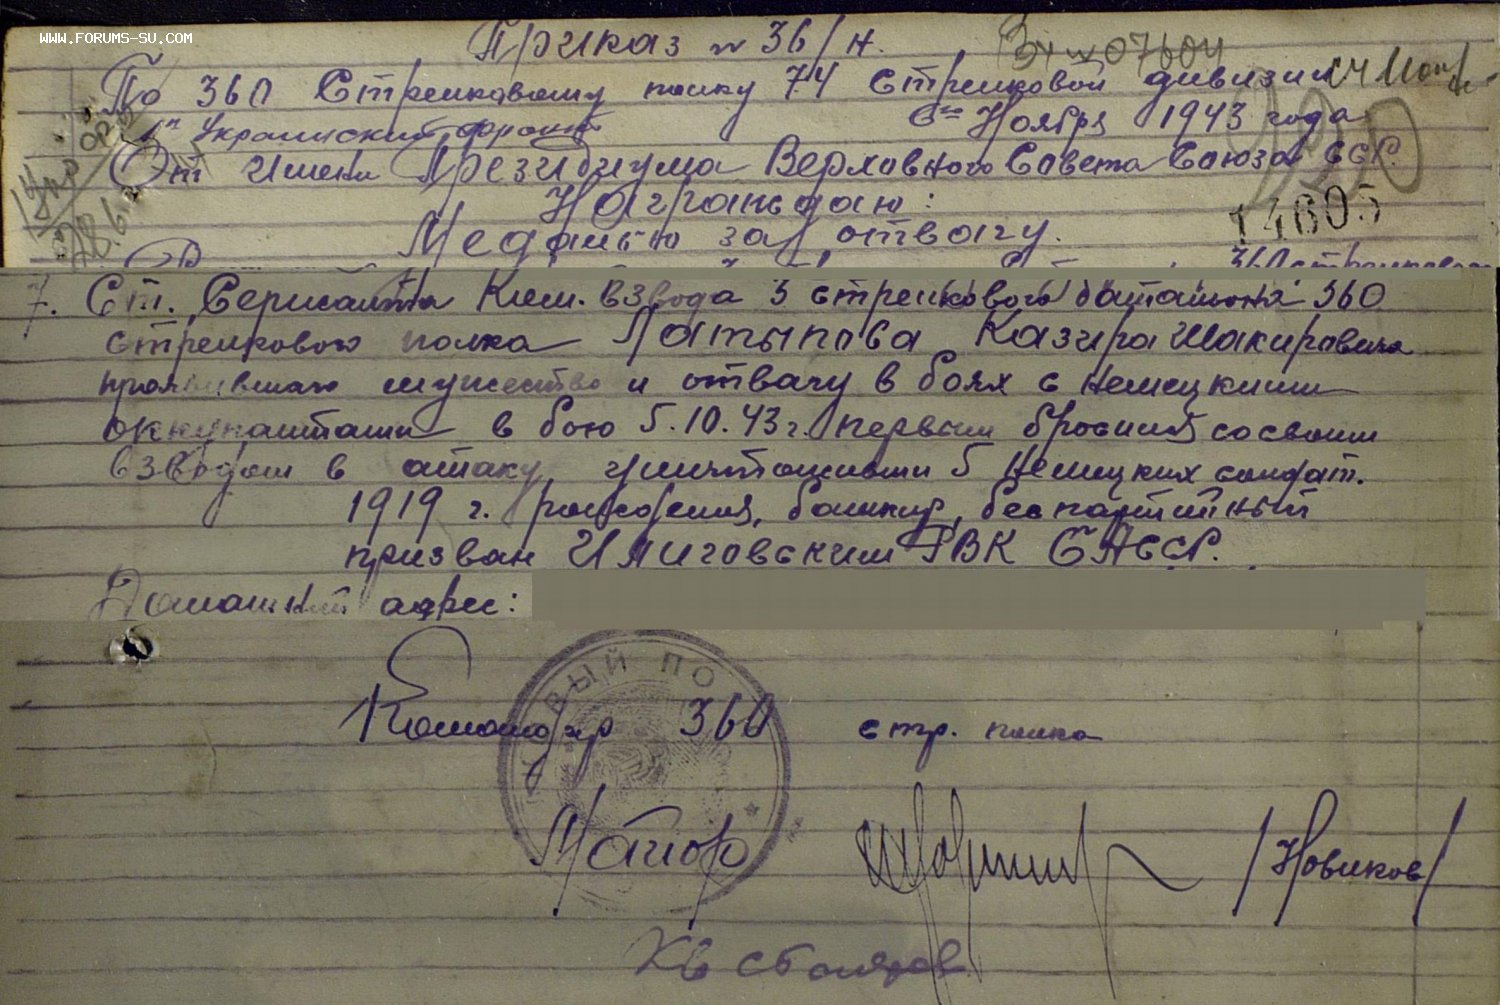 WWW.FORUMS-SU.COM
Приказ № 36/н.
По 360 Стрелковому полку 74 Стрелковой дивизии
1го Украинский фронт
6го Ноября 1943 года
От имени Президиума Верховного Совета Союза ССР.
Награждаю:
14605
Медалью за отвагу.
7. Ст. Сержанта Ком. взвода 3 стрелкового батальона 360
стрелкового полка Латыпова Казира Шакировича
проявившего мужество и отвагу в боях с немецкими
оккупантами в бою 5.10.43 г. первым бросился со своим
взводом в атаку уничтоживши 5 немецких солдат.
1919 г. рождения, башкир, беспартийный
призван Илиговским РВК БАССР.
Домашний адрес:
ВЫЙ ПО
Командир 360 стр. полка
Майор /Новиков/